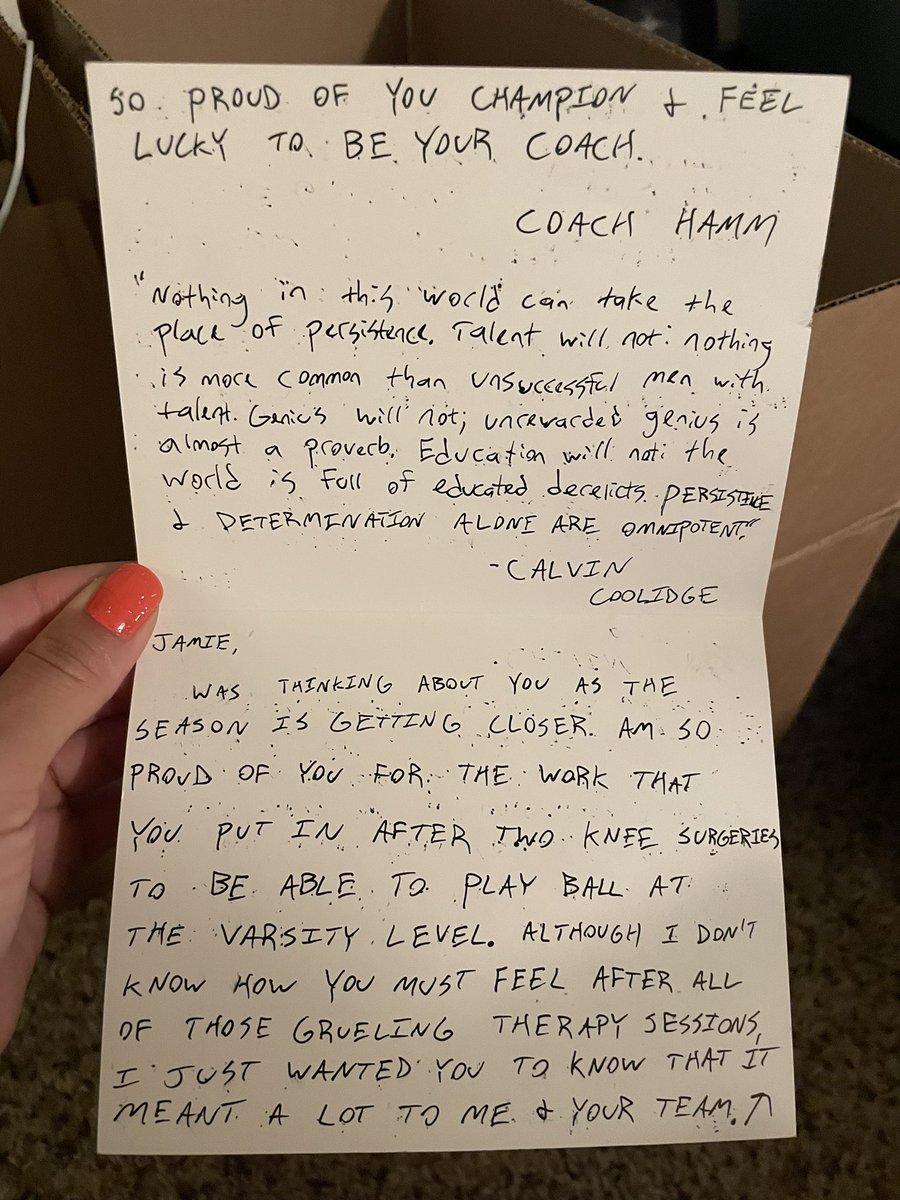 SO PROUD OF YOU CHAMPION & FEEL
LUCKY TO BE YOUR COACH.
COACH HAMM
"Nothing in this world can take the
place of persistence. Talent will not: nothing
is more common than unsuccessful men with
talent. Genius will not; unrewarded genius is
almost a proverb. Education will not: the
world is full of educated decelicts. PERSISTENCE
& DETERMINATION ALONE ARE OMNIPOTENT."
-CALVIN
COOLIDGE
JAMIE,
WAS THINKING ABOUT YOU AS THE
SEASON IS GETTING CLOSER. AM SO
PROUD OF YOU FOR THE WORK THAT
YOU PUT IN AFTER TWO KNEE SURGERIES
TO BE ABLE TO PLAY BALL AT
THE VARSITY LEVEL. ALTHOUGH I DON'T
KNOW HOW YOU MUST FEEL AFTER ALL
OF THOSE GRUELING THERAPY SESSIONS,
I JUST WANTED YOU TO KNOW THAT IT
MEANT A LOT TO ME & YOUR TEAM. ↗